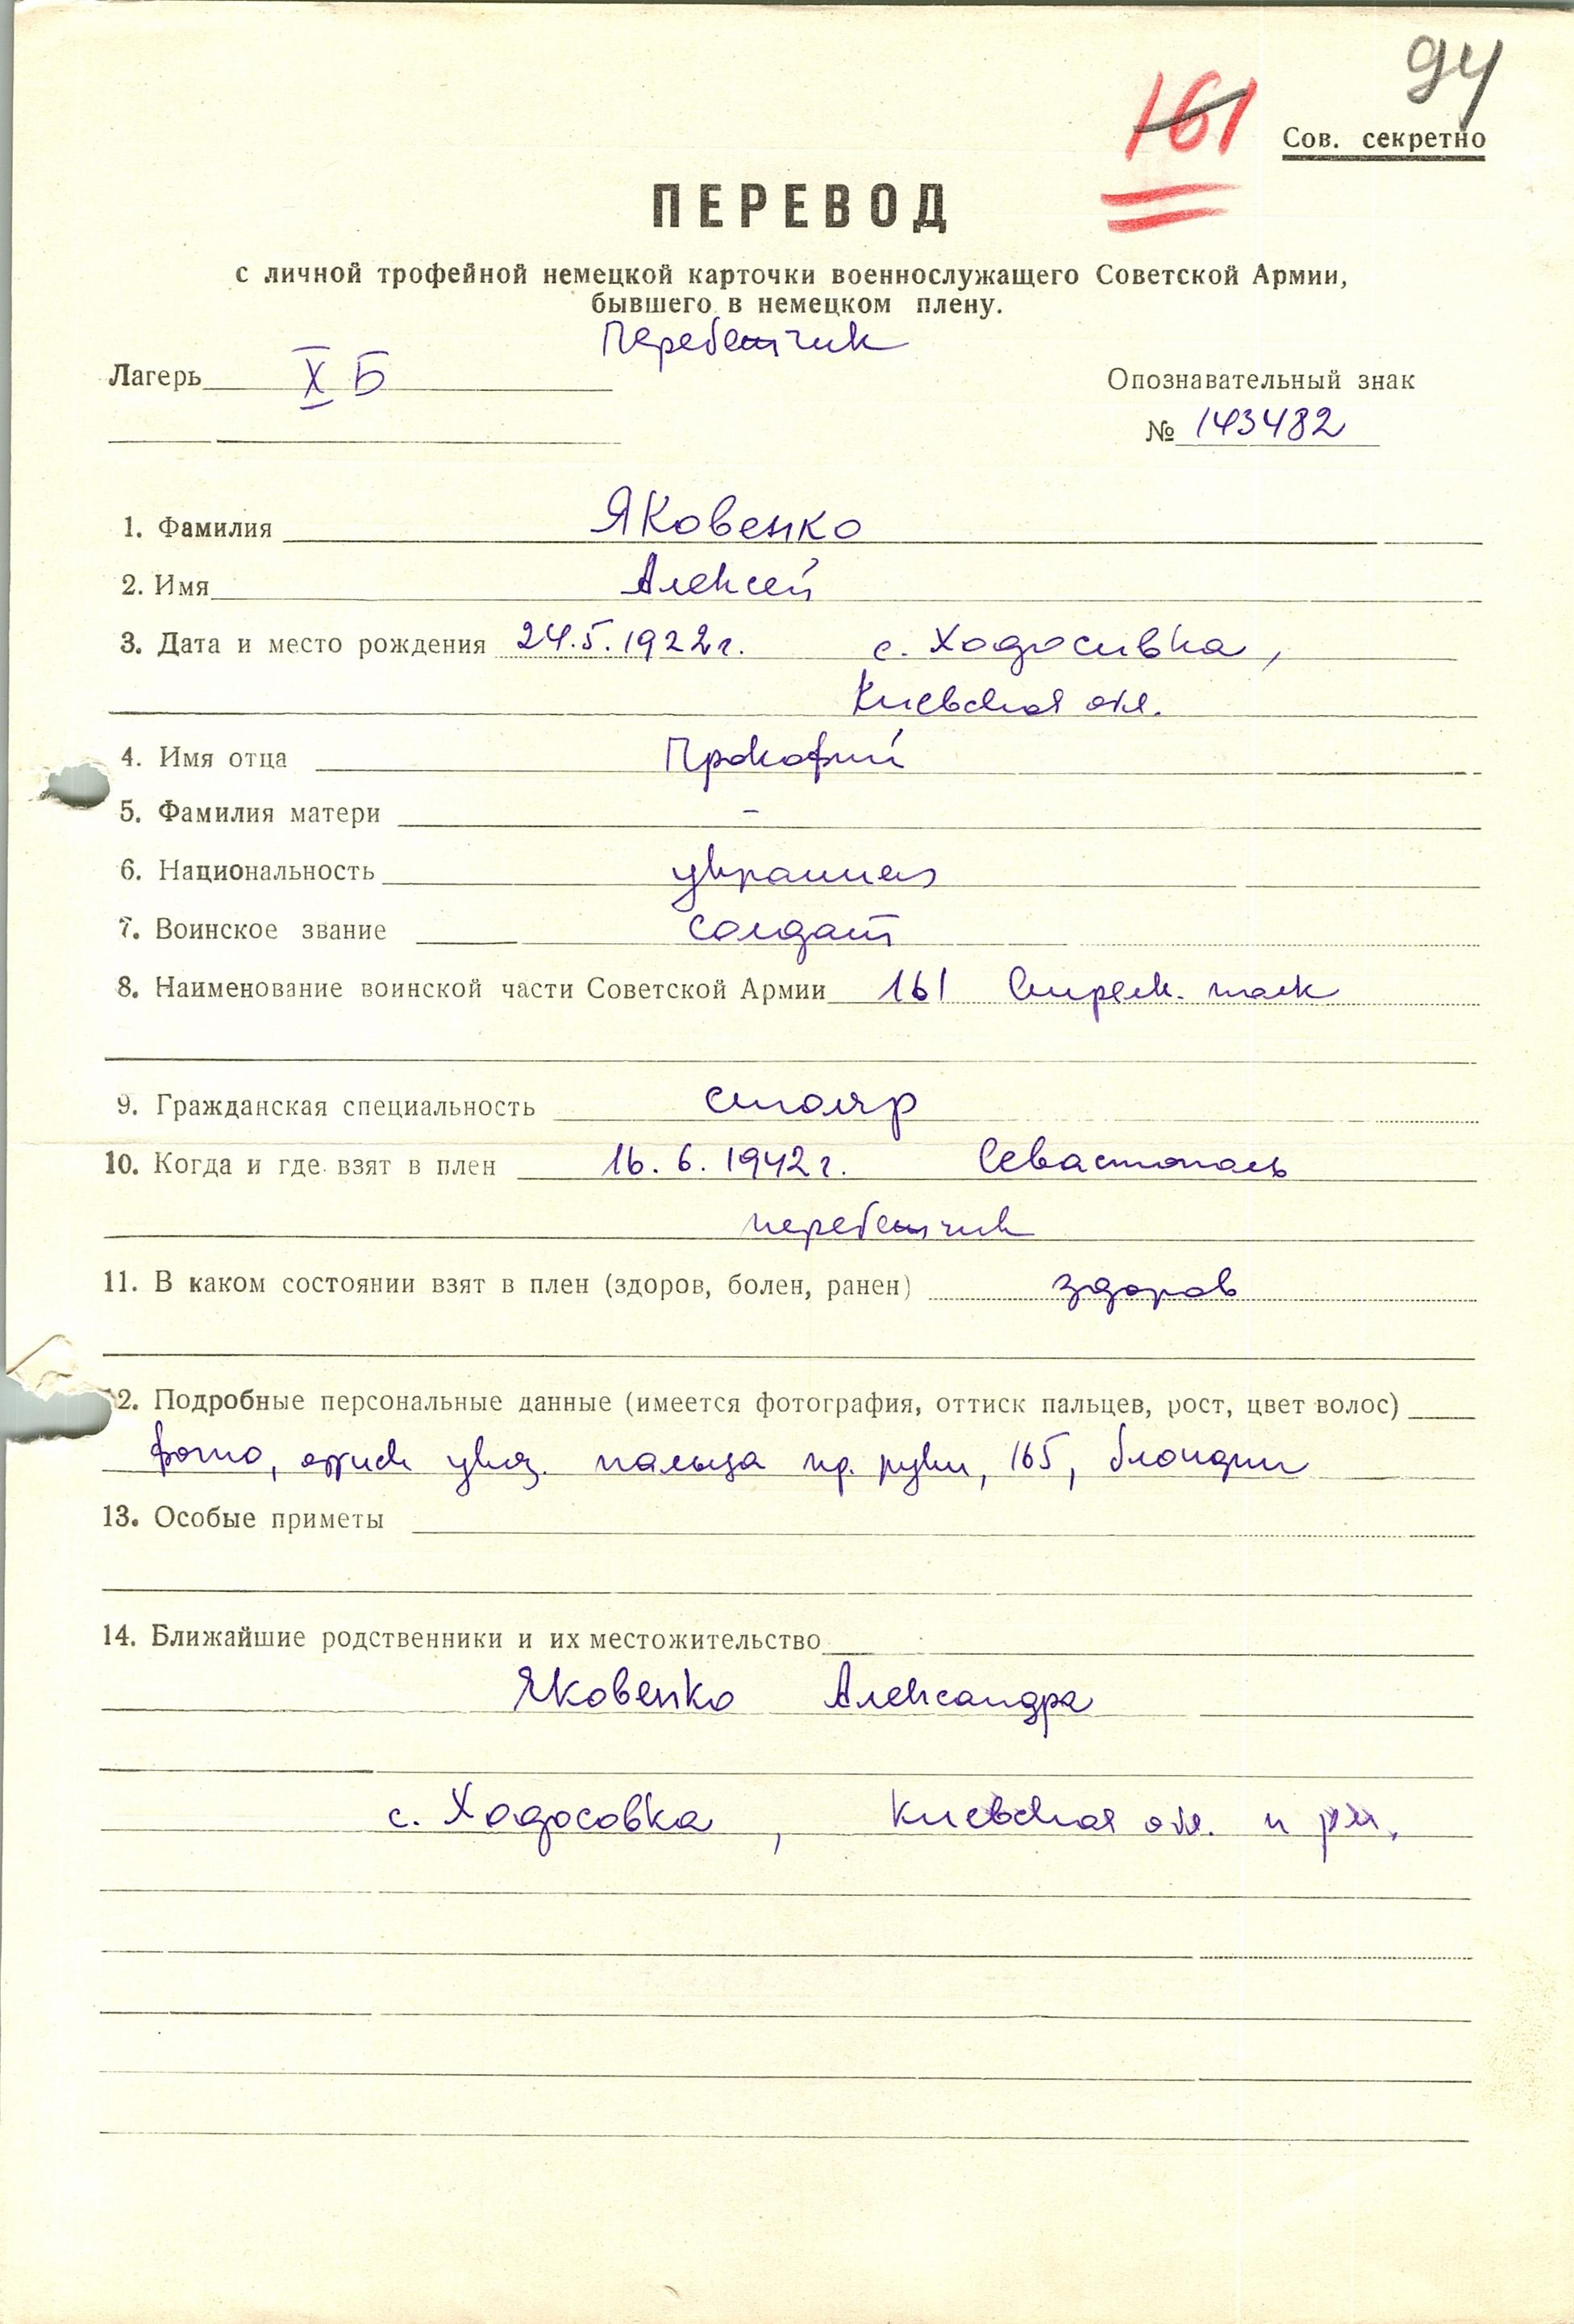 94
161
Сов. секретно
ПЕРЕВОД
с личной трофейной немецкой карточки военнослужащего Советской Армии,
бывшего в немецком плену.
Перебежчик
Лагерь X Б
Опознавательный знак
№ 143482
1. Фамилия Яковенко
2. Имя Алексей
3. Дата и место рождения 24.5.1922г. с. Ходосивка,
Киевская обл.
4. Имя отца Прокофий
5. Фамилия матери –
6. Национальность украинец
7. Воинское звание солдат
8. Наименование воинской части Советской Армии 161 Стрелк. полк
9. Гражданская специальность столяр
10. Когда и где взят в плен 16.6.1942г. Севастополь
перебежчик
11. В каком состоянии взят в плен (здоров, болен, ранен) здоров
12. Подробные персональные данные (имеется фотография, оттиск пальцев, рост, цвет волос)
фото, оттиск указ. пальца пр. руки, 165, блондин
13. Особые приметы
14. Ближайшие родственники и их местожительство
Яковенко Александра
с. Ходосовка, Киевская обл. и рн.